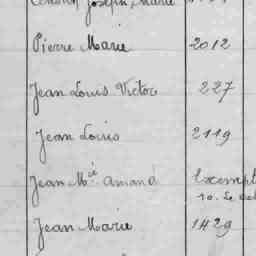 Joseph Marie
Pierre Marie 2012
Jean Louis Victor 227
Jean Louis 2119
Jean Mie Amand Exempt
Jean Marie 1429